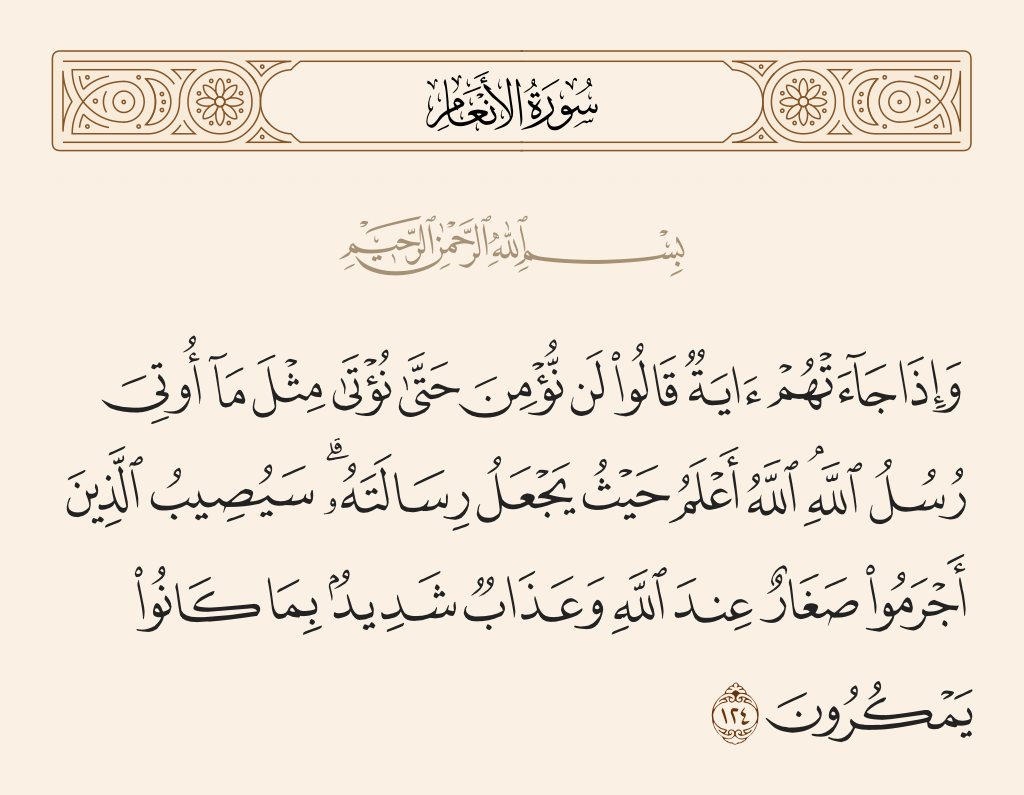 سُورَةُ الأَنْعَامِ
بِسْمِ ٱللَّهِ ٱلرَّحْمَٰنِ ٱلرَّحِيمِ
وَإِذَا جَآءَتْهُمْ ءَايَةٌ قَالُوا۟ لَن نُّؤْمِنَ حَتَّىٰ نُؤْتَىٰ مِثْلَ مَآ أُوتِىَ
رُسُلُ ٱللَّهِ ۘ ٱللَّهُ أَعْلَمُ حَيْثُ يَجْعَلُ رِسَالَتَهُۥ ۗ سَيُصِيبُ ٱلَّذِينَ
أَجْرَمُوا۟ صَغَارٌ عِندَ ٱللَّهِ وَعَذَابٌ شَدِيدٌۢ بِمَا كَانُوا۟
يَمْكُرُونَ ١٢٤